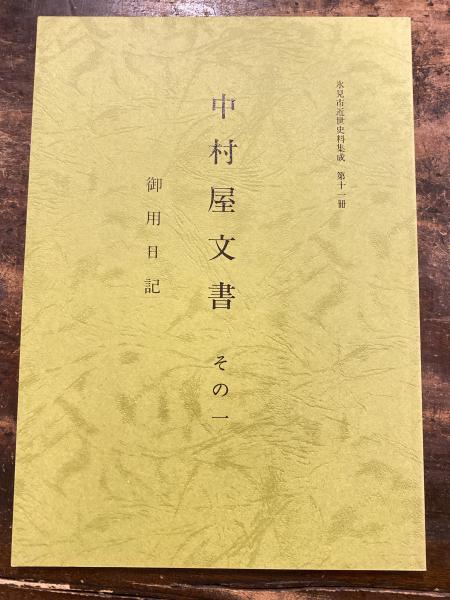 氷見市近世史料集成　第十一冊
中村屋文書　その一
御用日記